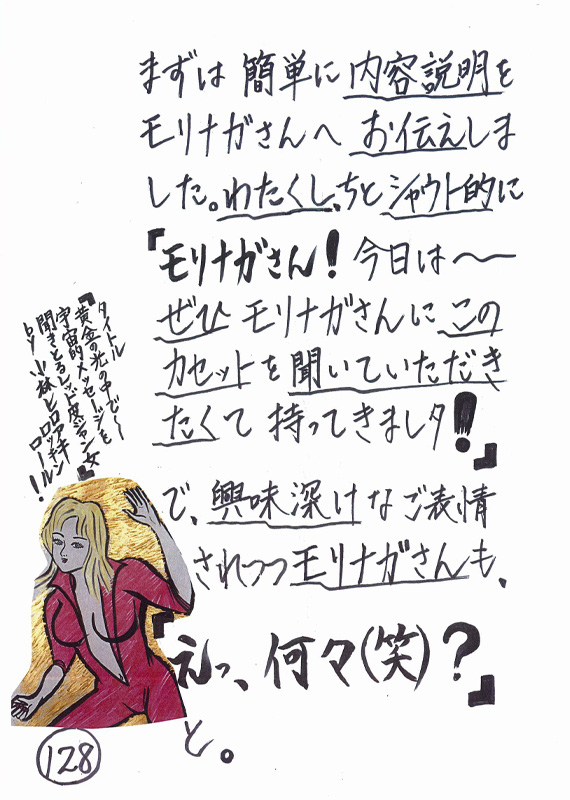 まずは簡単に内容説明を
モリナガさんへお伝えしま
した。わたくし、ちとシャウト的に
『モリナガさん!今日は〜〜
ぜひモリナガさんにこの
カセットを聞いていただき
たくて持ってきましタ!』
で、興味深けなご表情
されつつモリナガさんも、
『えっ、何々(笑)?』
と。
タイトル
『黄金の光の中で〜
宇宙的メッセージを
聞きとるレッド皮ジャン女』
by!!林ヒロアキ
ロッキンロール!
128